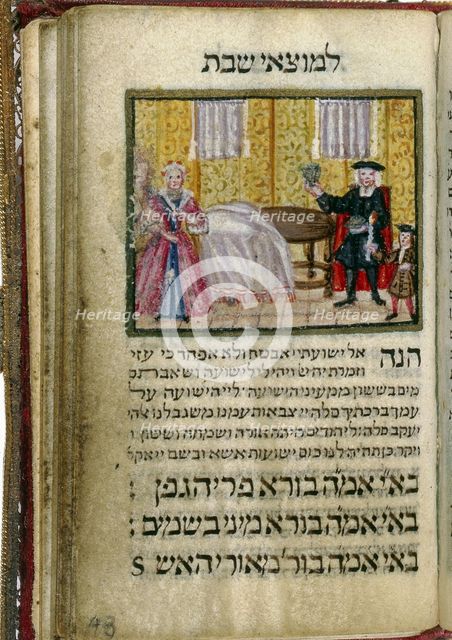 למוצאי שבת
הנה אל ישועתי אבטח ולא אפחד כי עזי
וזמרת יה יי ויהי לי לישועה ושאבתם
מים בששון ממעיני הישועה לייי הישועה על
עמך ברכתך סלה יי צבאות עמנו משגב לנו אלהי
יעקב סלה ליהודים היתה אורה ושמחה וששון
ויקר כן תהיה לנו כוס ישועות אשא ובשם יי אקרא
באי אמה בורא פרי הגפן :
באי אמה בורא מיני בשמים :
באי אמה בור' מאורי האש S
48
Heritage
Heritage
Heritage
Heritage
Heritage